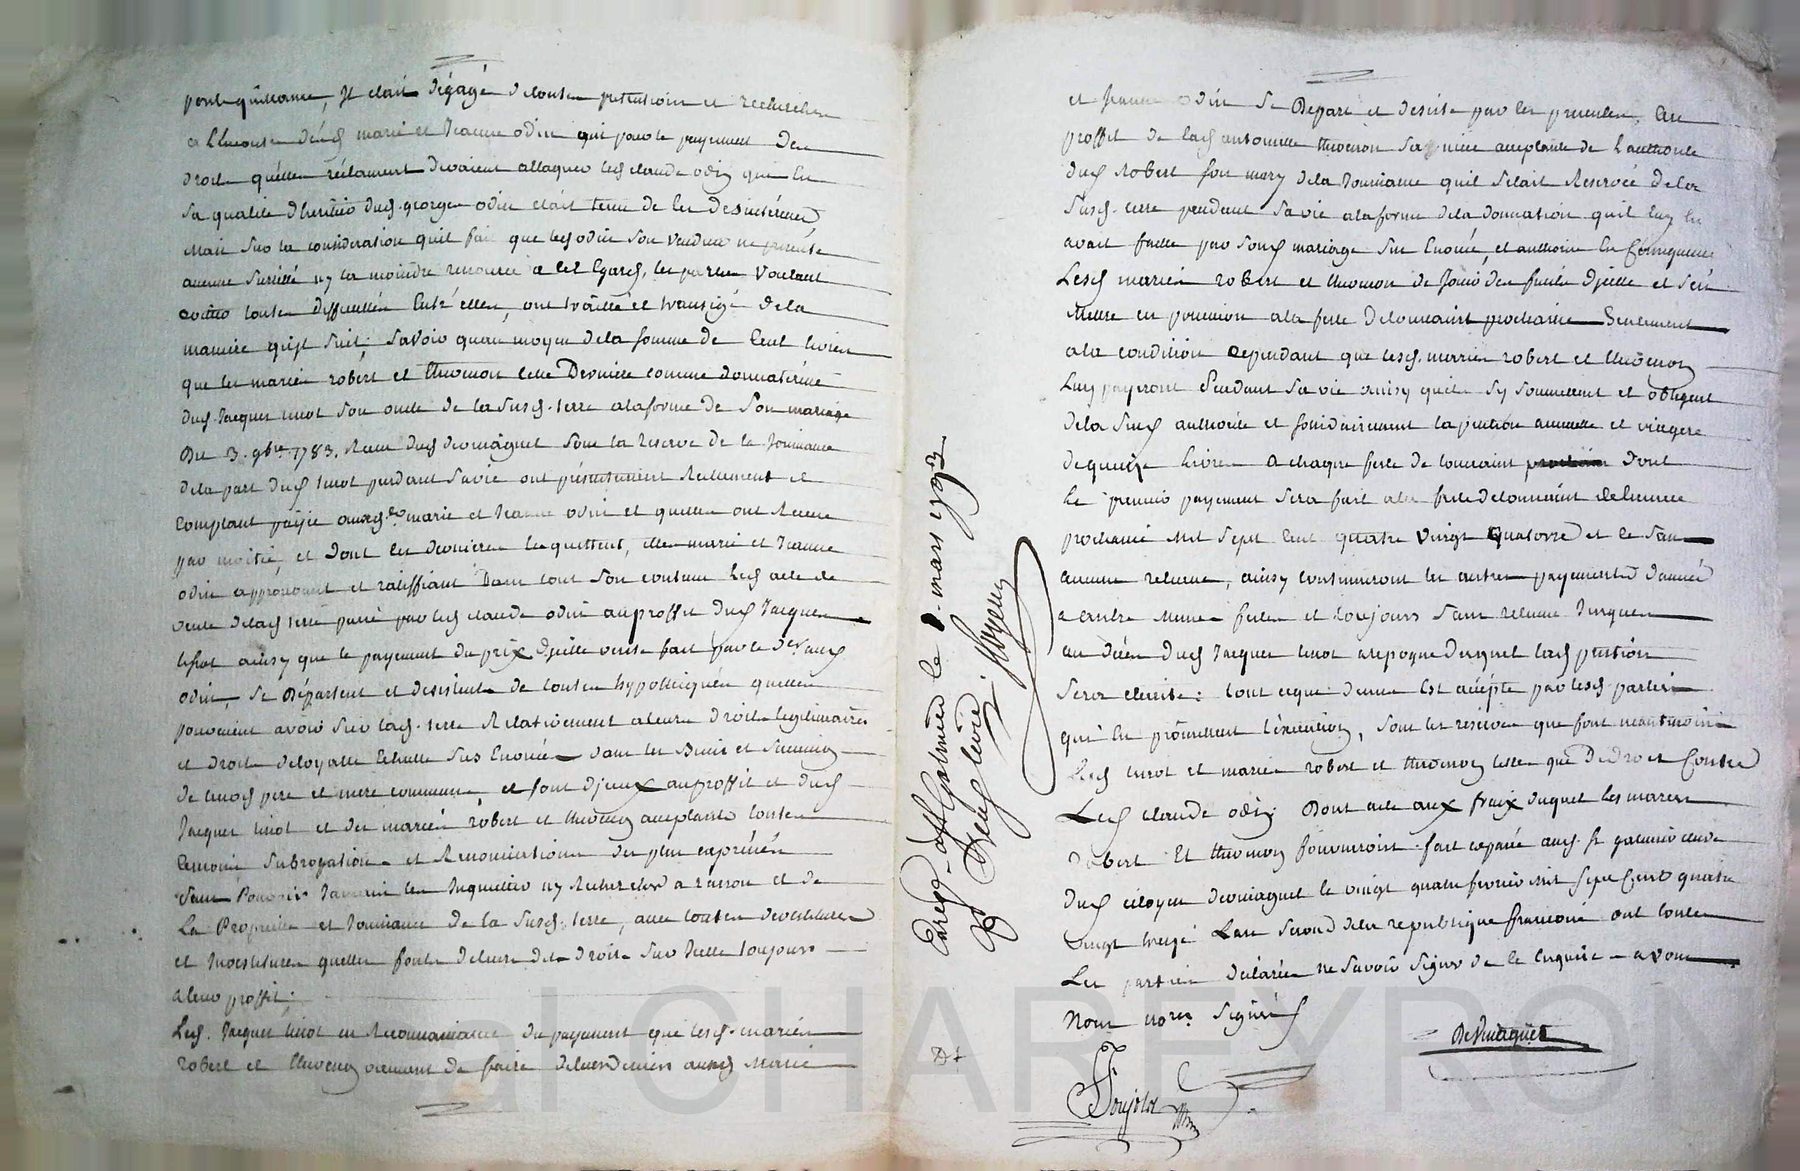 portequittance, Il etait dégagé de toutes pretentions et recherches
a l'encontre desd. marie et Jeanne odin qui pour le payement des
droits quelles réclament devoient attaquer led. claude odin qui en
sa qualité d'heritier dud. george odin etait tenu de les desinterreser
Mais sur la consideration quil fait que led. odin son vendeur ne presente
aucune sureté ny la moindre ressource a cet Egard, les parties voulant
eviter toutes difficultés Entr'elles, ont traitté et transigé de la
maniere qu'il suit; savoir quau moyen de la somme de Cent livres
que les mariés robert et thevenon cette Derniere comme donnataire
dud. Jacques tirot son oncle de la susd. terre a la forme de son mariage
Du 3. 9bre 1783. Recu dud. devinaguet sous la reserve de la Jouissance
de la part dud. tirot pendant sa vie ont présentement Réellement et
Comptant payée auxd. marie et Jeanne odin et quelles ont Recue
par moitié, et dont les dernieres les quittent, elles marie et Jeanne
odin approuvant et ratiffiant Dans tout son contenu led. acte de
vente de lad. terre passé par led. claude odin au proffit dud. Jacques
tirot ainsy que le payement du prix d'icelle vente fait par le
odin, se Départent et desistent de toutes hypotheques quelles
pouvoient avoir sur lad. terre Relativement a leurs droits legitimaires
et droits
de leurs pere et mere communs, et font d'jceux au proffit et dud.
Jacques tirot et des mariés robert et thevenon acceptants toutes
Cessions subrogations et Renonciations des plus expresses
sans Pouvoir Jamais les Inquietter ny Rechercher a raison et de
La Proprietté et Jouissance de la susd. terre, avec toutes devestitures
et Investitures quelles font de leurs dits droits sur Icelle toujours
a leur proffit;
Led. Jacques tirot en Reconnaissance du payement que lesd. mariés
robert et thevenon viennent de faire de leurs deniers auxd. Marie
et Jeanne odin Se Depart et desiste par les presentes, au
proffit de lad. antoinette thevenon sa niece acceptante de l'authorité
dud. Robert son mary de la Jouissance quil s'etait Reservée de la
susd. terre pendant sa vie a la forme de la donnation quil luy en
avait faitte par son mariage sus Enoncé, et authorise En Consequence
Lesd. mariés robert et thevenon de Jouir des fruits d'jcelle et s'en
Mettre en possession a la fete de toussaint prochaine Seulement
a la condition Cependant que lesd. mariés robert et thevenon
Luy payeront Pendant sa vie ainsy quils s'y soumettent et obligent
de la susd. authorité et solidairement la pention annuelle et viagere
de quinze livres a chaque fete de toussaint dont
Le premier payement sera fait a la fete de toussaint de l'année
prochaine mil sept cent quatre vingt quatorze et ce sans
aucune retenue, ainsy continueront les autres payements d'année
a autre Memes fetes et toujours sans retenue Jusques
au décès dud. Jacques tirot a epoque duquel lad. pention
sera eteinte: tout ceque dessus est accepté par lesd. parties
qui En promettent l'execution, sous les reserves que font neantmoins
Lesd. tirot et mariés robert et thevenon telles que De Droit Contre
Led. claude odin Dont acte aux fraix duquel les mariés
robert Et thevenon fourniront. fait et passé aud. St galmier etude
dud. citoyen devinaguet le vingt quatre fevrier mil sept Cent quatre
vingt treize L'an second de la republique francoise ont toutes
Les parties declarées ne savoir signer de ce Enquises avons
Nous notres signés
Devinaguet
Poujola
Enreg. a St Galmier le mars 1793
Dix livres. Royeux